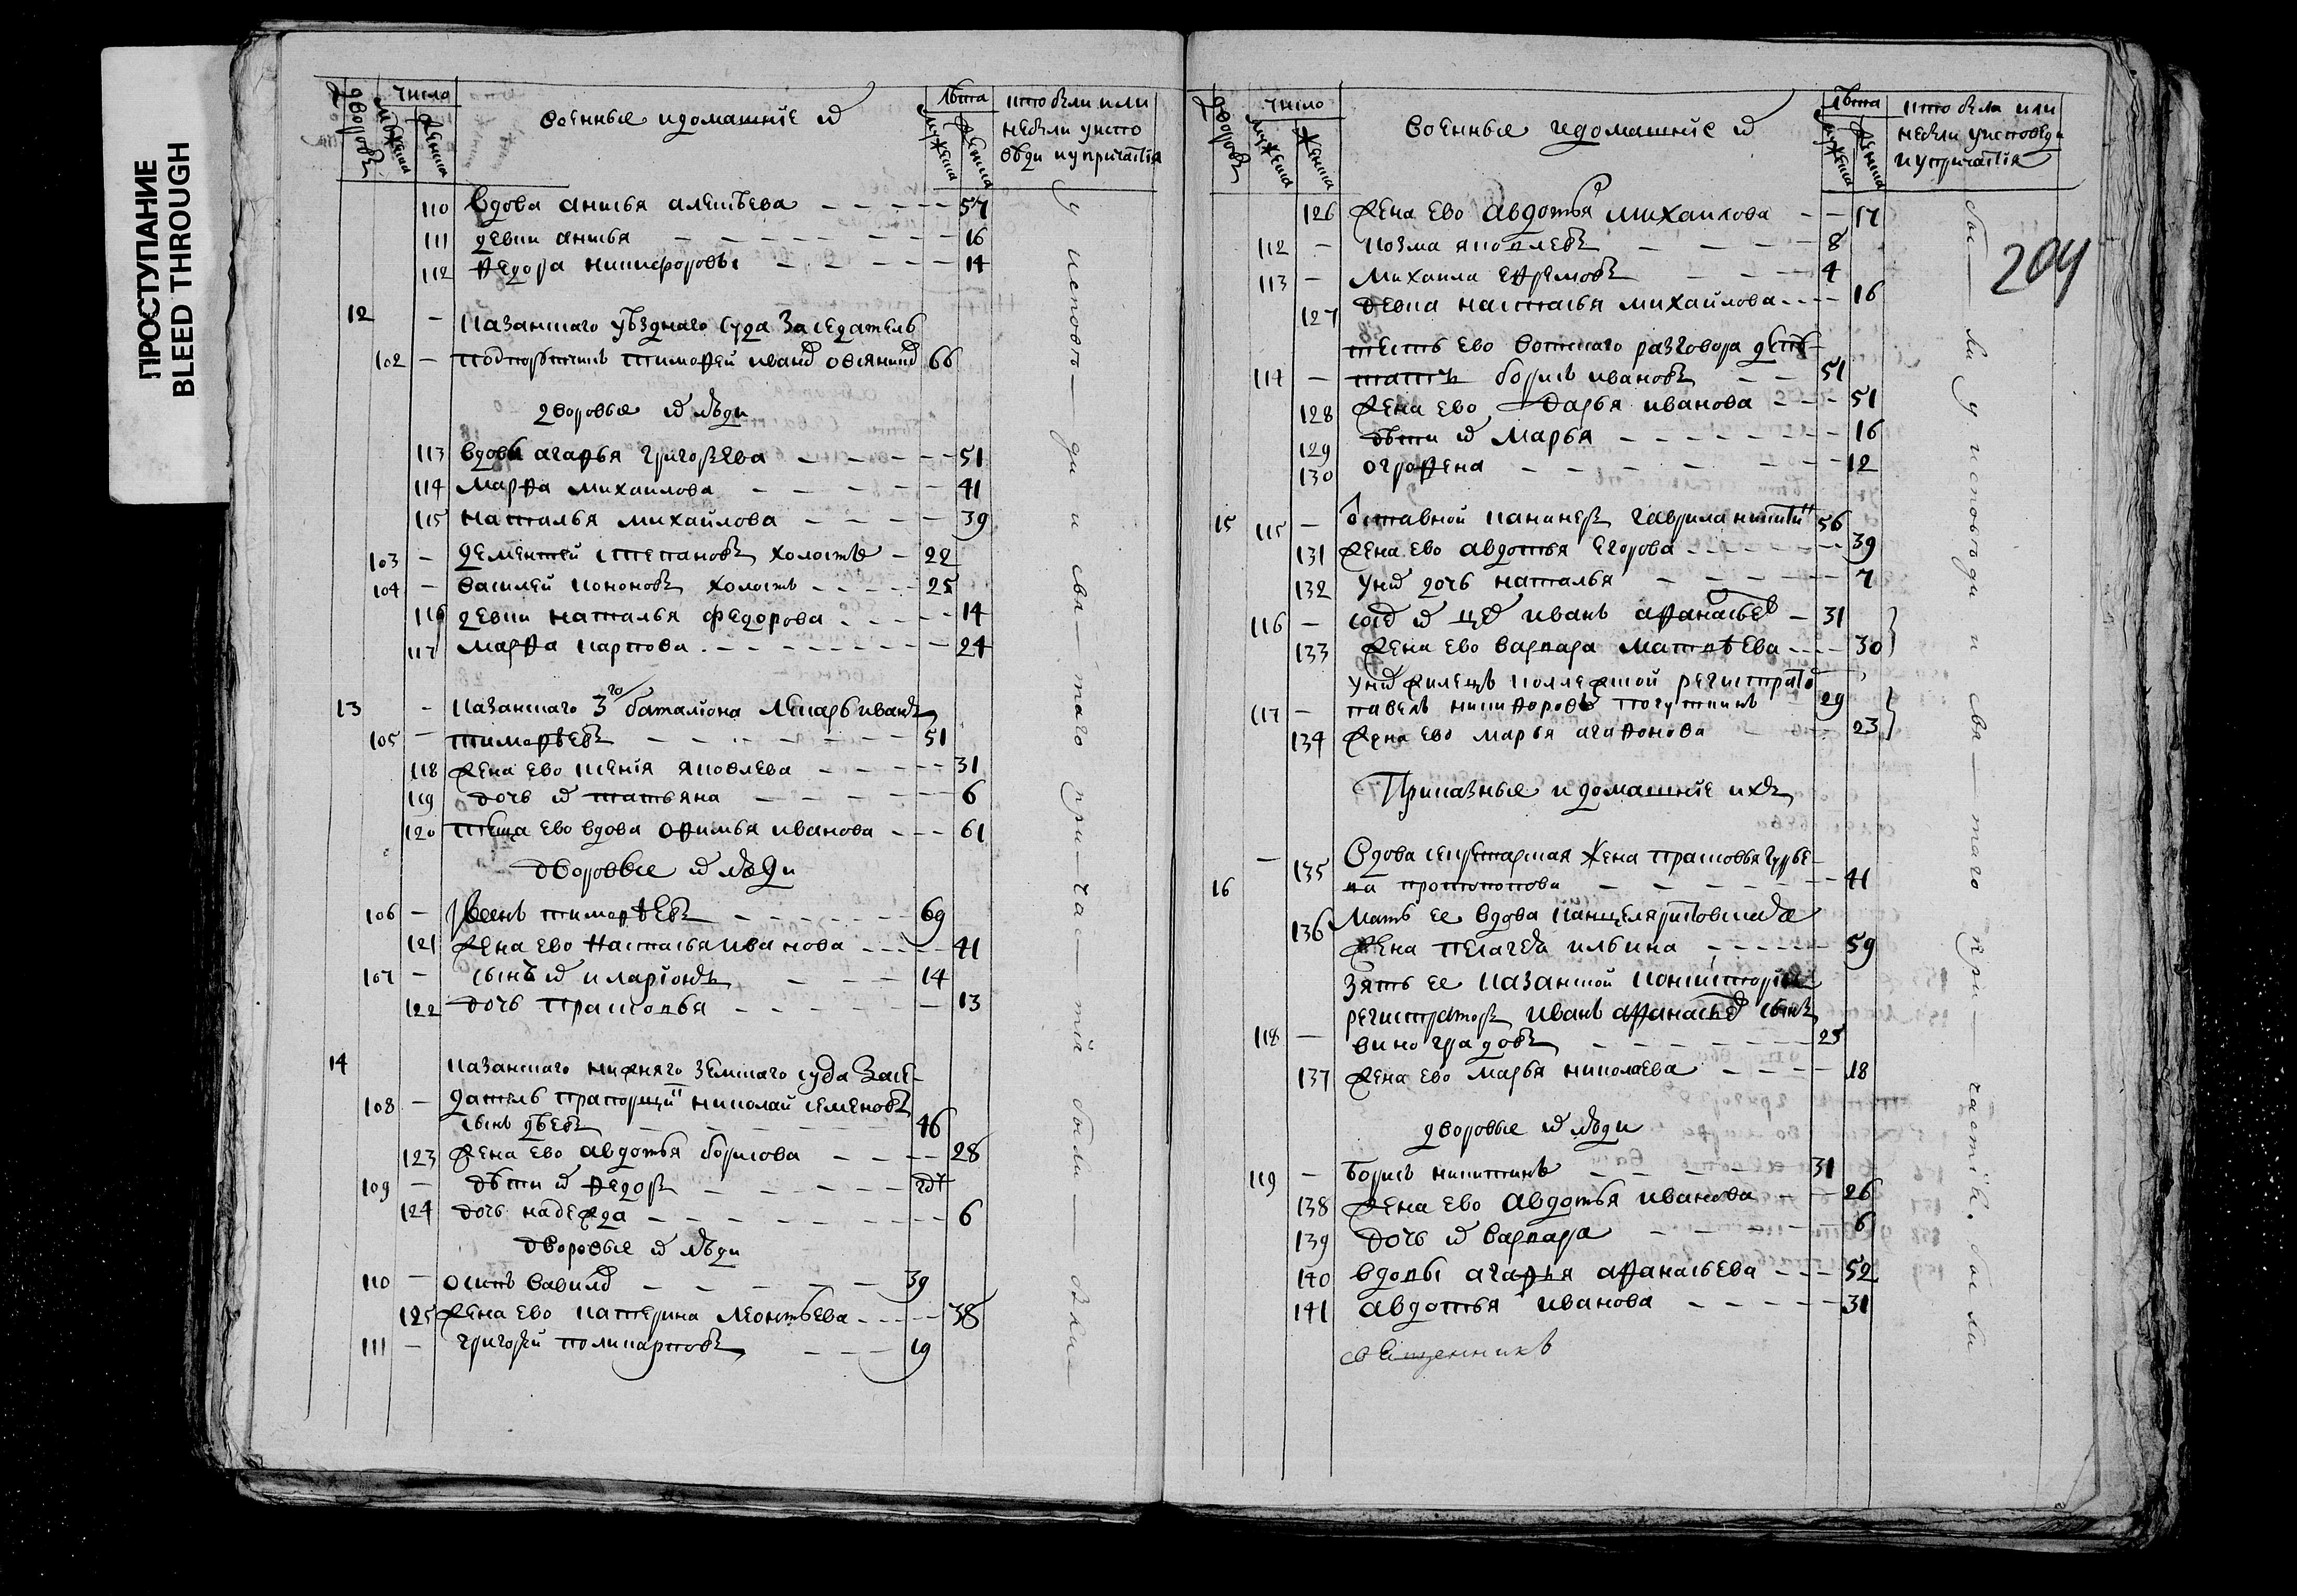 ПРОСТУПАНИЕ
BLEED THROUGH
дворовъ
число
мужеска
женска
военные и домашніе их
лѣта
мужеска
женска
кто были или
небыли у испо
вѣди и у причастія
110 вдова анисья алексѣева 57
111 девки анисья 16
112 федора никифоровы 14
12 - казанскаго уѣзднаго суда заседатель
102 - подпорутчикъ тимофей иванов овсяников 66
дворовые их люди
113 вдовы агафья григорьева 51
114 марфа михаилова 41
115 наталья михайлова 39
103 - дементей степановъ холостъ 22
104 - василей кононовъ холостъ 25
116 девки наталья федорова 14
117 марфа карпова 24
13 - казанскаго 3го баталіона лекарь иванъ
105 - тимофѣевъ 51
118 жена ево ксенія яковлева 31
119 дочь их татьяна 6
120 теща ево вдова офимья иванова 61
дворовые их люди
106 - тимофѣевъ 69
121 жена ево настасья иванова 41
107 - сынъ их иларіонъ 14
122 дочь прасковья 13
14 казанскаго нижняго земскаго суда засе-
108 - датель прапорщик николай семеновъ
сынъ 46
123 жена ево авдотья борисова 28
109 - дѣти их федоръ
124 дочь надежда 6
дворовые их люди
110 - осипъ вавилов 39
125 жена ево катерина леонтьева 38
111 - григорей поликарповъ 19
у исповѣ — ди и свя — таго при — ча — стія были — всѣ
дворовъ
число
мужеска
женска
военные и домашніе их
лѣта
мужеска
женска
кто были или
небыли у исповеди
и у причастія
204
126 жена ево авдотья михаилова 17
112 - козма яковлевъ 8
113 - михаила ефремовъ 4
127 девка настасья михайлова 16
тесть ево
114 - борисъ ивановъ 51
128 жена ево дарья иванова 51
129 дѣти их марья 16
130 ографена 12
15 115 - отставной канонеръ гаврила никитин 56
131 жена ево авдотья егорова 39
132 у них дочь наталья 7
116 - иванъ афанасьев 31
133 жена ево варвара матвѣева 30
у них жилецъ коллежской регистратор
117 - павелъ никифоровъ 29
134 жена ево марья агафонова 23
Приказные и домашніе ихъ
16 - 135 вдова секретарская жена прасковья гурье-
ва протопопова 41
136 мать ее вдова канцеляристовская
жена пелагея ильина 59
зять ее казанской консисторіи
регистраторъ иванъ афанасьев сынъ
118 - виноградовъ 25
137 жена ево марья николаева 18
дворовые их люди
119 - борисъ никитинъ 31
138 жена ево авдотья иванова 26
139 дочь их варвара 6
140 вдовы агафья афанасьева 52
141 авдотья иванова 31
священникъ
бы — ли у исповѣди и свя — таго при — частія. были